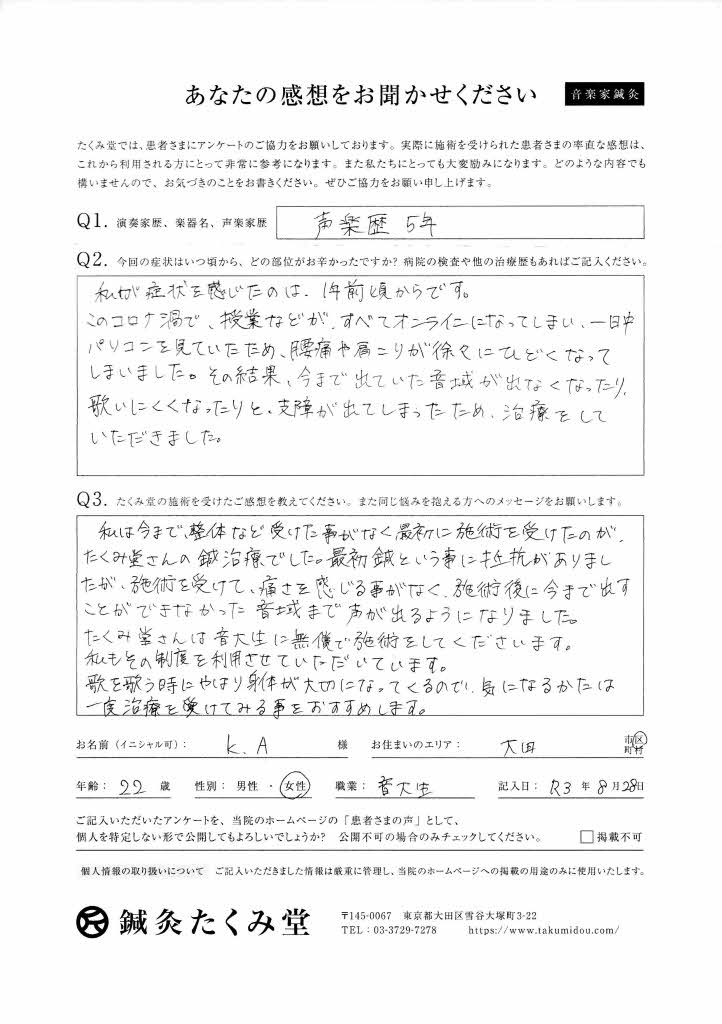 あなたの感想をお聞かせください
音楽家鍼灸
たくみ堂では、患者さまにアンケートのご協力をお願いしております。実際に施術を受けられた患者さまの率直な感想は、
これから利用される方にとって非常に参考になります。また私たちにとっても大変励みになります。どのような内容でも
構いませんので、お気づきのことをお書きください。ぜひご協力をお願い申し上げます。
Q1. 演奏家歴、楽器名、声楽家歴
声楽歴 5年
Q2. 今回の症状はいつ頃から、どの部位がお辛かったですか? 病院の検査や他の治療歴もあればご記入ください。
私が症状を感じたのは、1年前頃からです。
このコロナ渦で、授業などが、すべてオンラインになってしまい、一日中
パソコンを見ていたため、腰痛や肩こりが徐々にひどくなって
しまいました。その結果、今まで出ていた音域が出なくなったり、
歌いにくくなったりと、支障が出てしまったため、治療をして
いただきました。
Q3. たくみ堂の施術を受けたご感想を教えてください。また同じ悩みを抱える方へのメッセージをお願いします。
私は今まで、整体など受けた事がなく最初に施術を受けたのが、
たくみ堂さんの鍼治療でした。最初鍼という事に抵抗がありまし
たが、施術を受けて、痛さを感じる事がなく、施術後に今まで出す
ことができなかった音域まで声が出るようになりました。
たくみ堂さんは音大生に無償で施術をしてくださいます。
私もその制度を利用させていただいています。
歌を歌う時にやはり身体が大切になってくるので、気になるかたは
一度治療を受けてみる事をおすすめします。
お名前(イニシャル可): K.A 様 お住まいのエリア: 大田 市区町村
年齢: 22 歳 性別: 男性 ・ 女性 職業: 音大生 記入日: R3 年 8 月 28 日
ご記入いただいたアンケートを、当院のホームページの「患者さまの声」として、
個人を特定しない形で公開してもよろしいでしょうか? 公開不可の場合のみチェックしてください。 □掲載不可
個人情報の取り扱いについて ご記入いただきました情報は厳重に管理し、当院のホームページへの掲載の用途のみに使用いたします。
鍼灸たくみ堂
〒145-0067 東京都大田区雪谷大塚町3-22
TEL:03-3729-7278 https://www.takumidou.com/